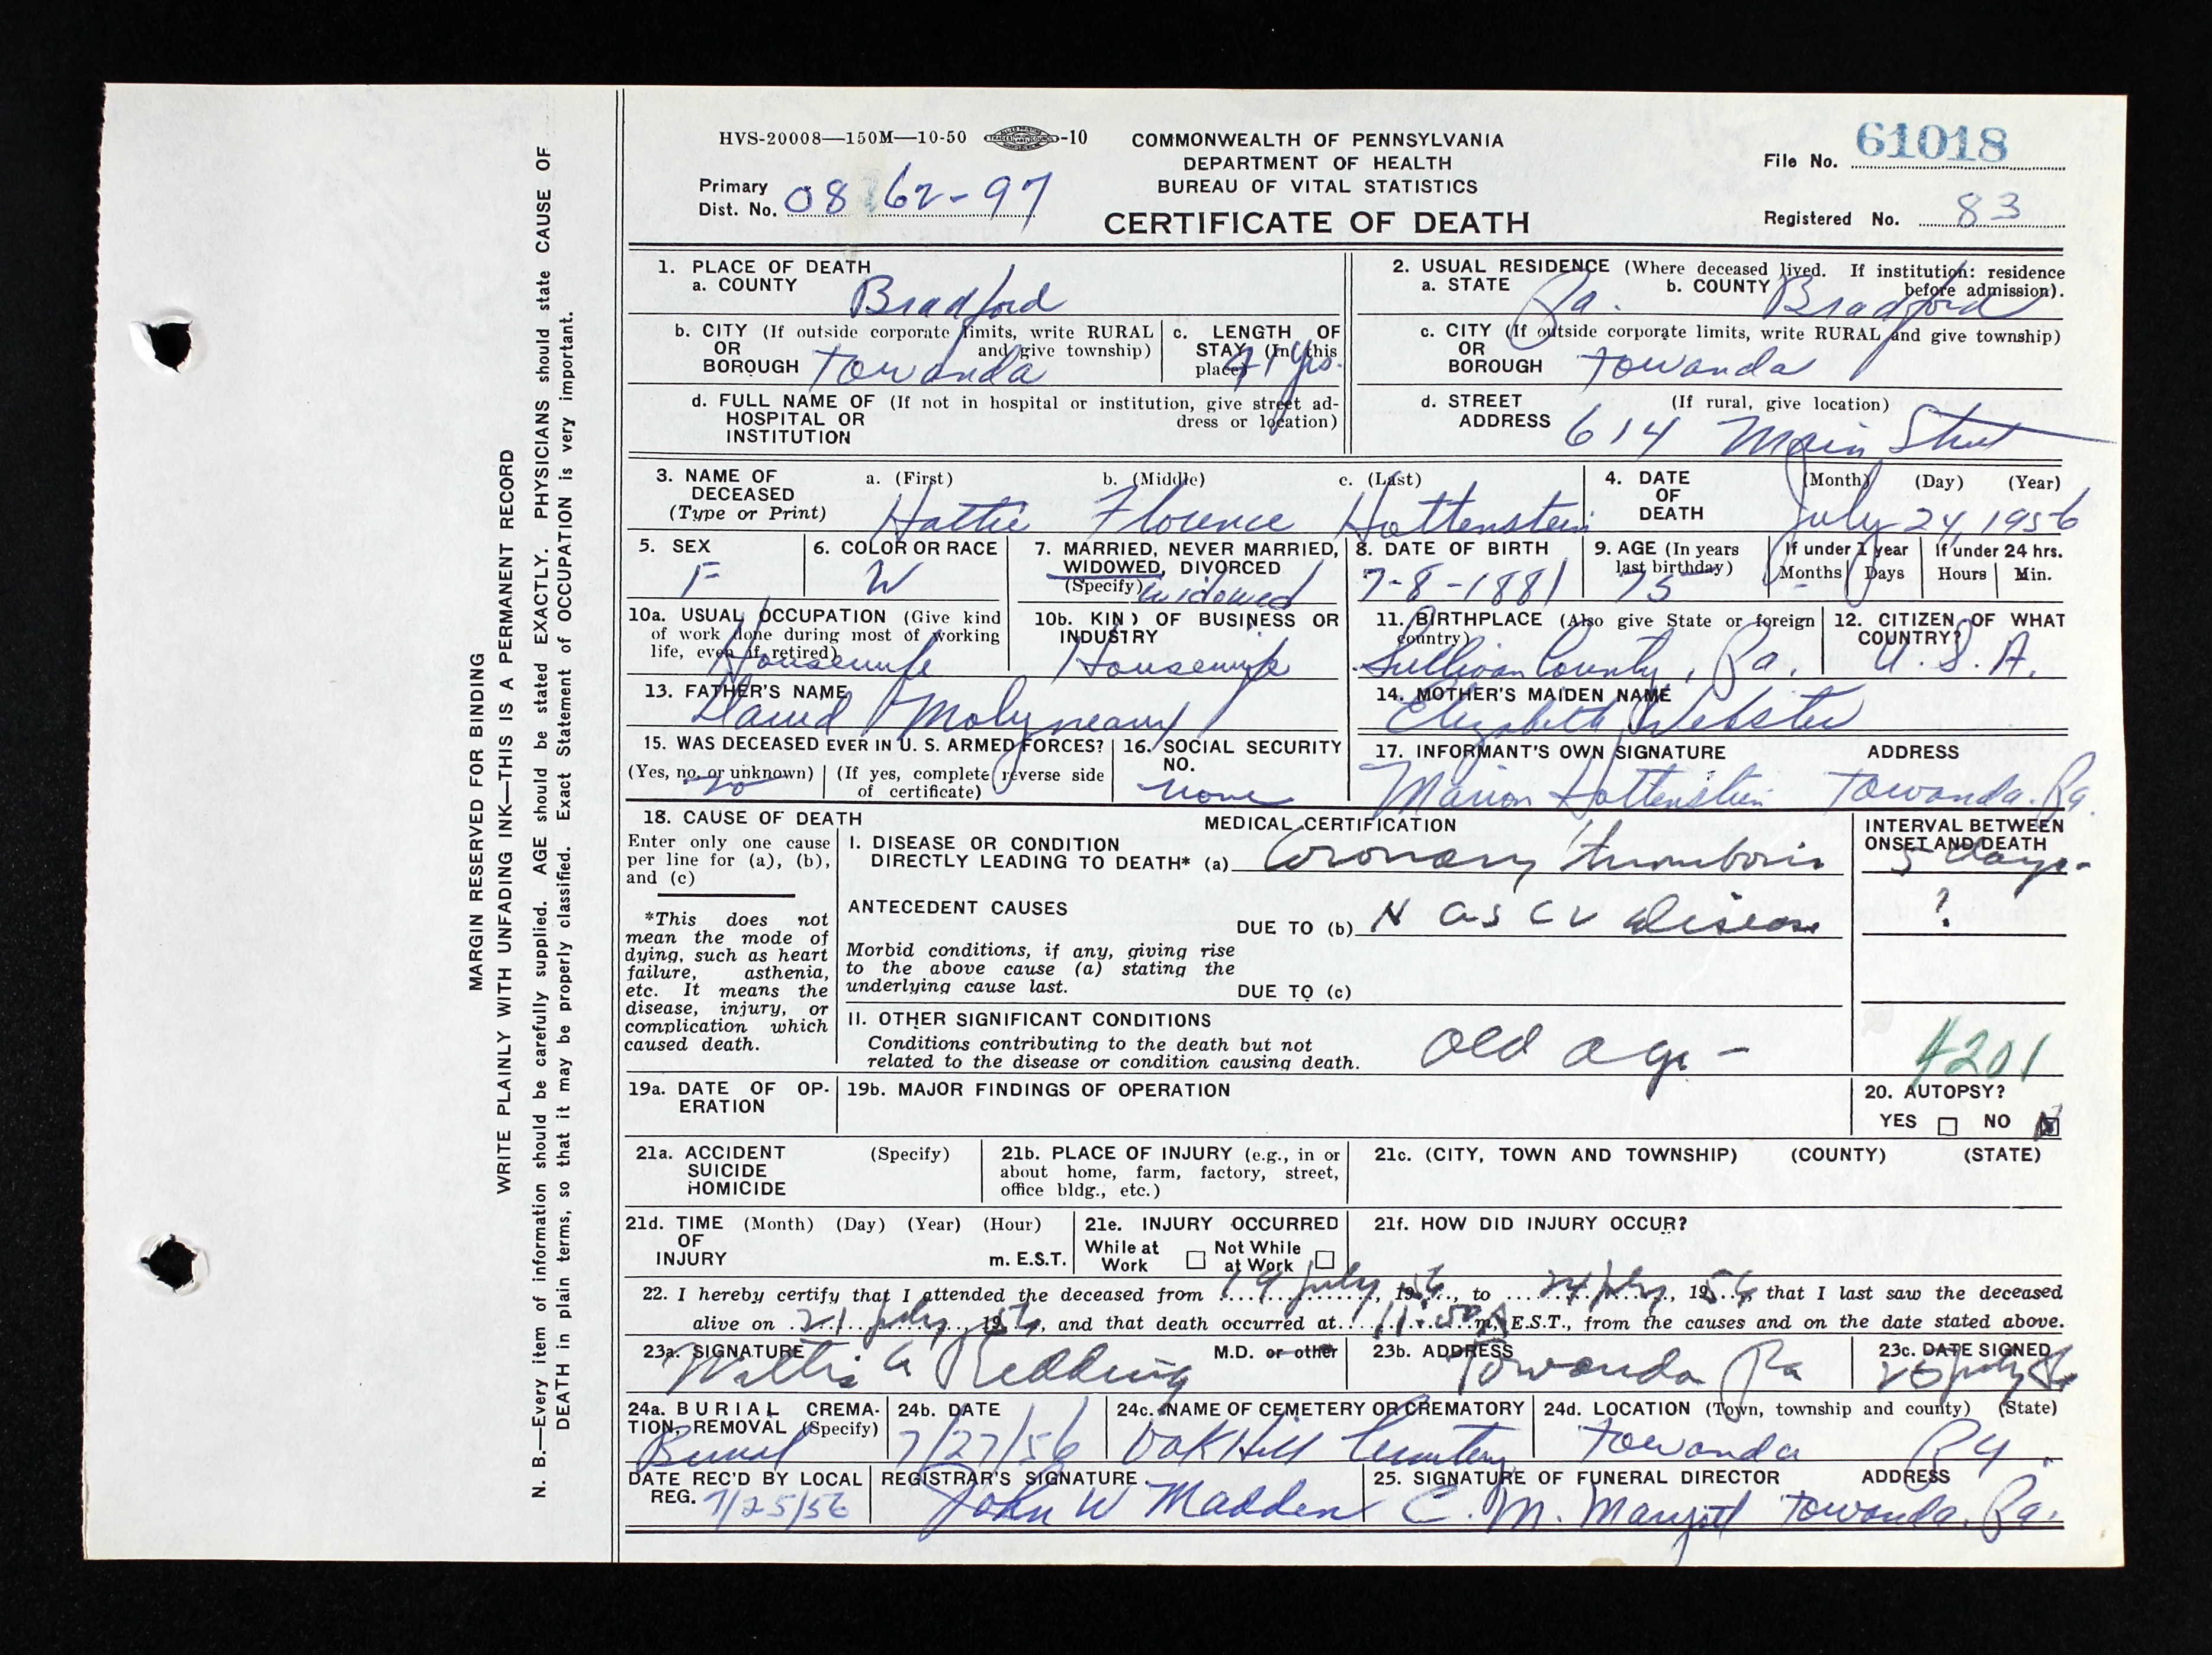 HVS-20008—150M—10-50 -10
COMMONWEALTH OF PENNSYLVANIA
DEPARTMENT OF HEALTH
BUREAU OF VITAL STATISTICS
CERTIFICATE OF DEATH
Primary Dist. No. 08 62-97
File No. 61018
Registered No. 83
MARGIN RESERVED FOR BINDING
WRITE PLAINLY WITH UNFADING INK—THIS IS A PERMANENT RECORD
N. B.—Every item of information should be carefully supplied. AGE should be stated EXACTLY. PHYSICIANS should state CAUSE OF
DEATH in plain terms, so that it may be properly classified. Exact Statement of OCCUPATION is very important.
1. PLACE OF DEATH
a. COUNTY Bradford
b. CITY (If outside corporate limits, write RURAL
OR and give township)
BOROUGH Towanda
c. LENGTH OF
STAY (In this
place) yrs.
d. FULL NAME OF (If not in hospital or institution, give street ad-
HOSPITAL OR dress or location)
INSTITUTION
2. USUAL RESIDENCE (Where deceased lived. If institution: residence
before admission).
a. STATE Pa. b. COUNTY Bradford
c. CITY (If outside corporate limits, write RURAL and give township)
OR
BOROUGH Towanda
d. STREET (If rural, give location)
ADDRESS 614 Main Street
3. NAME OF a. (First) b. (Middle) c. (Last)
DECEASED
(Type or Print) Hattie Florence Hottenstein
4. DATE (Month) (Day) (Year)
OF
DEATH July 24, 1956
5. SEX
F
6. COLOR OR RACE
W
7. MARRIED, NEVER MARRIED,
WIDOWED, DIVORCED
(Specify) widowed
8. DATE OF BIRTH
7-8-1881
9. AGE (In years
last birthday)
75
If under 1 year
Months Days
If under 24 hrs.
Hours Min.
10a. USUAL OCCUPATION (Give kind
of work done during most of working
life, even if retired)
Housewife
10b. KIND OF BUSINESS OR
INDUSTRY
Housewife
11. BIRTHPLACE (Also give State or foreign
country)
Sullivan County, Pa.
12. CITIZEN OF WHAT
COUNTRY?
U. S. A.
13. FATHER'S NAME
David Molyneaux
14. MOTHER'S MAIDEN NAME
Elizabeth Webster
15. WAS DECEASED EVER IN U. S. ARMED FORCES?
(Yes, no, or unknown) (If yes, complete reverse side
of certificate)
no
16. SOCIAL SECURITY
NO.
none
17. INFORMANT'S OWN SIGNATURE ADDRESS
Marion Hottenstein Towanda. Pa.
18. CAUSE OF DEATH
Enter only one cause
per line for (a), (b),
and (c)
*This does not
mean the mode of
dying, such as heart
failure, asthenia,
etc. It means the
disease, injury, or
complication which
caused death.
MEDICAL CERTIFICATION
I. DISEASE OR CONDITION
DIRECTLY LEADING TO DEATH* (a) Coronary thrombosis
ANTECEDENT CAUSES
DUE TO (b) H as c v disease
Morbid conditions, if any, giving rise
to the above cause (a) stating the
underlying cause last.
DUE TO (c)
II. OTHER SIGNIFICANT CONDITIONS
Conditions contributing to the death but not
related to the disease or condition causing death.
old age -
INTERVAL BETWEEN
ONSET AND DEATH
5 days-
?
4201
19a. DATE OF OP-
ERATION
19b. MAJOR FINDINGS OF OPERATION
20. AUTOPSY?
YES NO
21a. ACCIDENT (Specify)
SUICIDE
HOMICIDE
21b. PLACE OF INJURY (e.g., in or
about home, farm, factory, street,
office bldg., etc.)
21c. (CITY, TOWN AND TOWNSHIP) (COUNTY) (STATE)
21d. TIME (Month) (Day) (Year) (Hour)
OF
INJURY m. E.S.T.
21e. INJURY OCCURRED
While at Work Not While at Work
21f. HOW DID INJURY OCCUR?
22. I hereby certify that I attended the deceased from 19 July, 1956, to 24 July, 1956, that I last saw the deceased
alive on 21 July, 1956, and that death occurred at 11:50 A m. E.S.T., from the causes and on the date stated above.
23a. SIGNATURE M.D. or other
Redding
23b. ADDRESS
Towanda Pa
23c. DATE SIGNED
July 56
24a. BURIAL CREMA-
TION, REMOVAL (Specify)
Burial
24b. DATE
7/27/56
24c. NAME OF CEMETERY OR CREMATORY
Oak Hill Cemetery
24d. LOCATION (Town, township and county) (State)
Towanda Pa.
DATE REC'D BY LOCAL
REG. 7/25/56
REGISTRAR'S SIGNATURE
John W Madden
25. SIGNATURE OF FUNERAL DIRECTOR ADDRESS
C. M. Towanda, Pa.